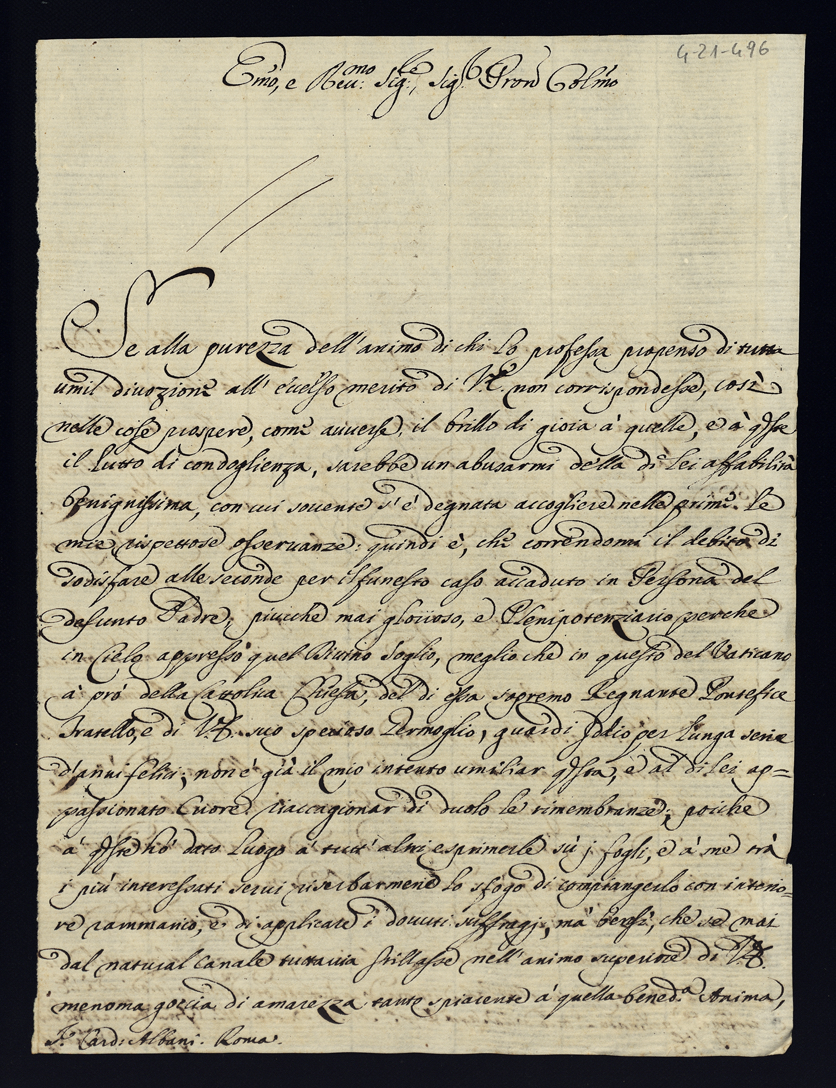 4-21-496
Emo, e Reu:mo Sig:re, Sig:r Pron Colmo
Se alla purezza dell'animo di chi lo professa propenso di tutta
umil divozione all' eccelso merito di V.E. non corrispondesse, così
nelle cose prospere, come auuerse, il brillo di gioia à quelle, e à qste
il lutto di condoglienza, sarebbe un abusarmi della di lei affabilità
benignissima, con cui souente s'è degnata accogliere nelle prime le
mie rispettose osseruanze: quindi è, che correndomi il debito di
sodisfare alle seconde per il funesto caso accaduto in Persona del
defunto Padre, piucche mai glorioso, e Plenipotenziario perche
in Cielo appresso quel Diuino Soglio, meglio che in questo del Vaticano
à prò della Cattolica Chiesa, del di essa supremo Regnante Pontefice
Fratello, e di V.E. suo specioso Germoglio, guardi Idio per lunga serie
d'anni felici, non è già il mio intento umiliar qsta, e al di lei ap=
passionato Cuore riaccagionar di duolo le rimembranze; poiche
à qste hò dato luogo à tutt'altri esprimerle sù j fogli, e à me trà
i più interessati serui riserbarmene lo sfogo di compiangerlo con interio=
re rammarico, e di applicare i douuti suffragj, mà bensì, che se mai
dal natural Canale tuttauia stillasse nell'animo superiore di V.E.
menoma goccia di amarezza tanto spiacente à quella bened.a Anima,
Sr. Card: Albani. Roma.